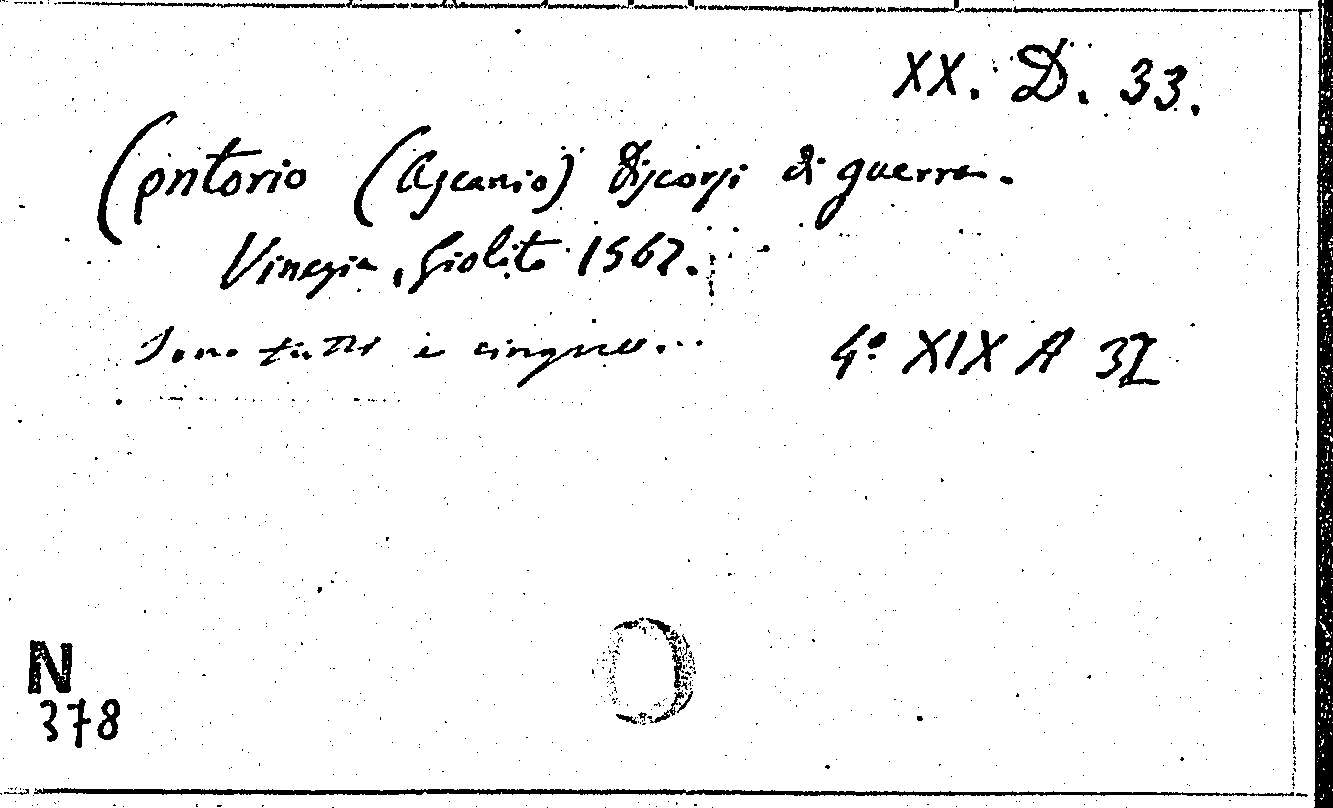 XX. D. 33.
Centorio (Ascanio) Discorsi di guerra.
Vinegia, Giolito 1567.
Sono tutti e cinque...
4º XIX A 37
N
378